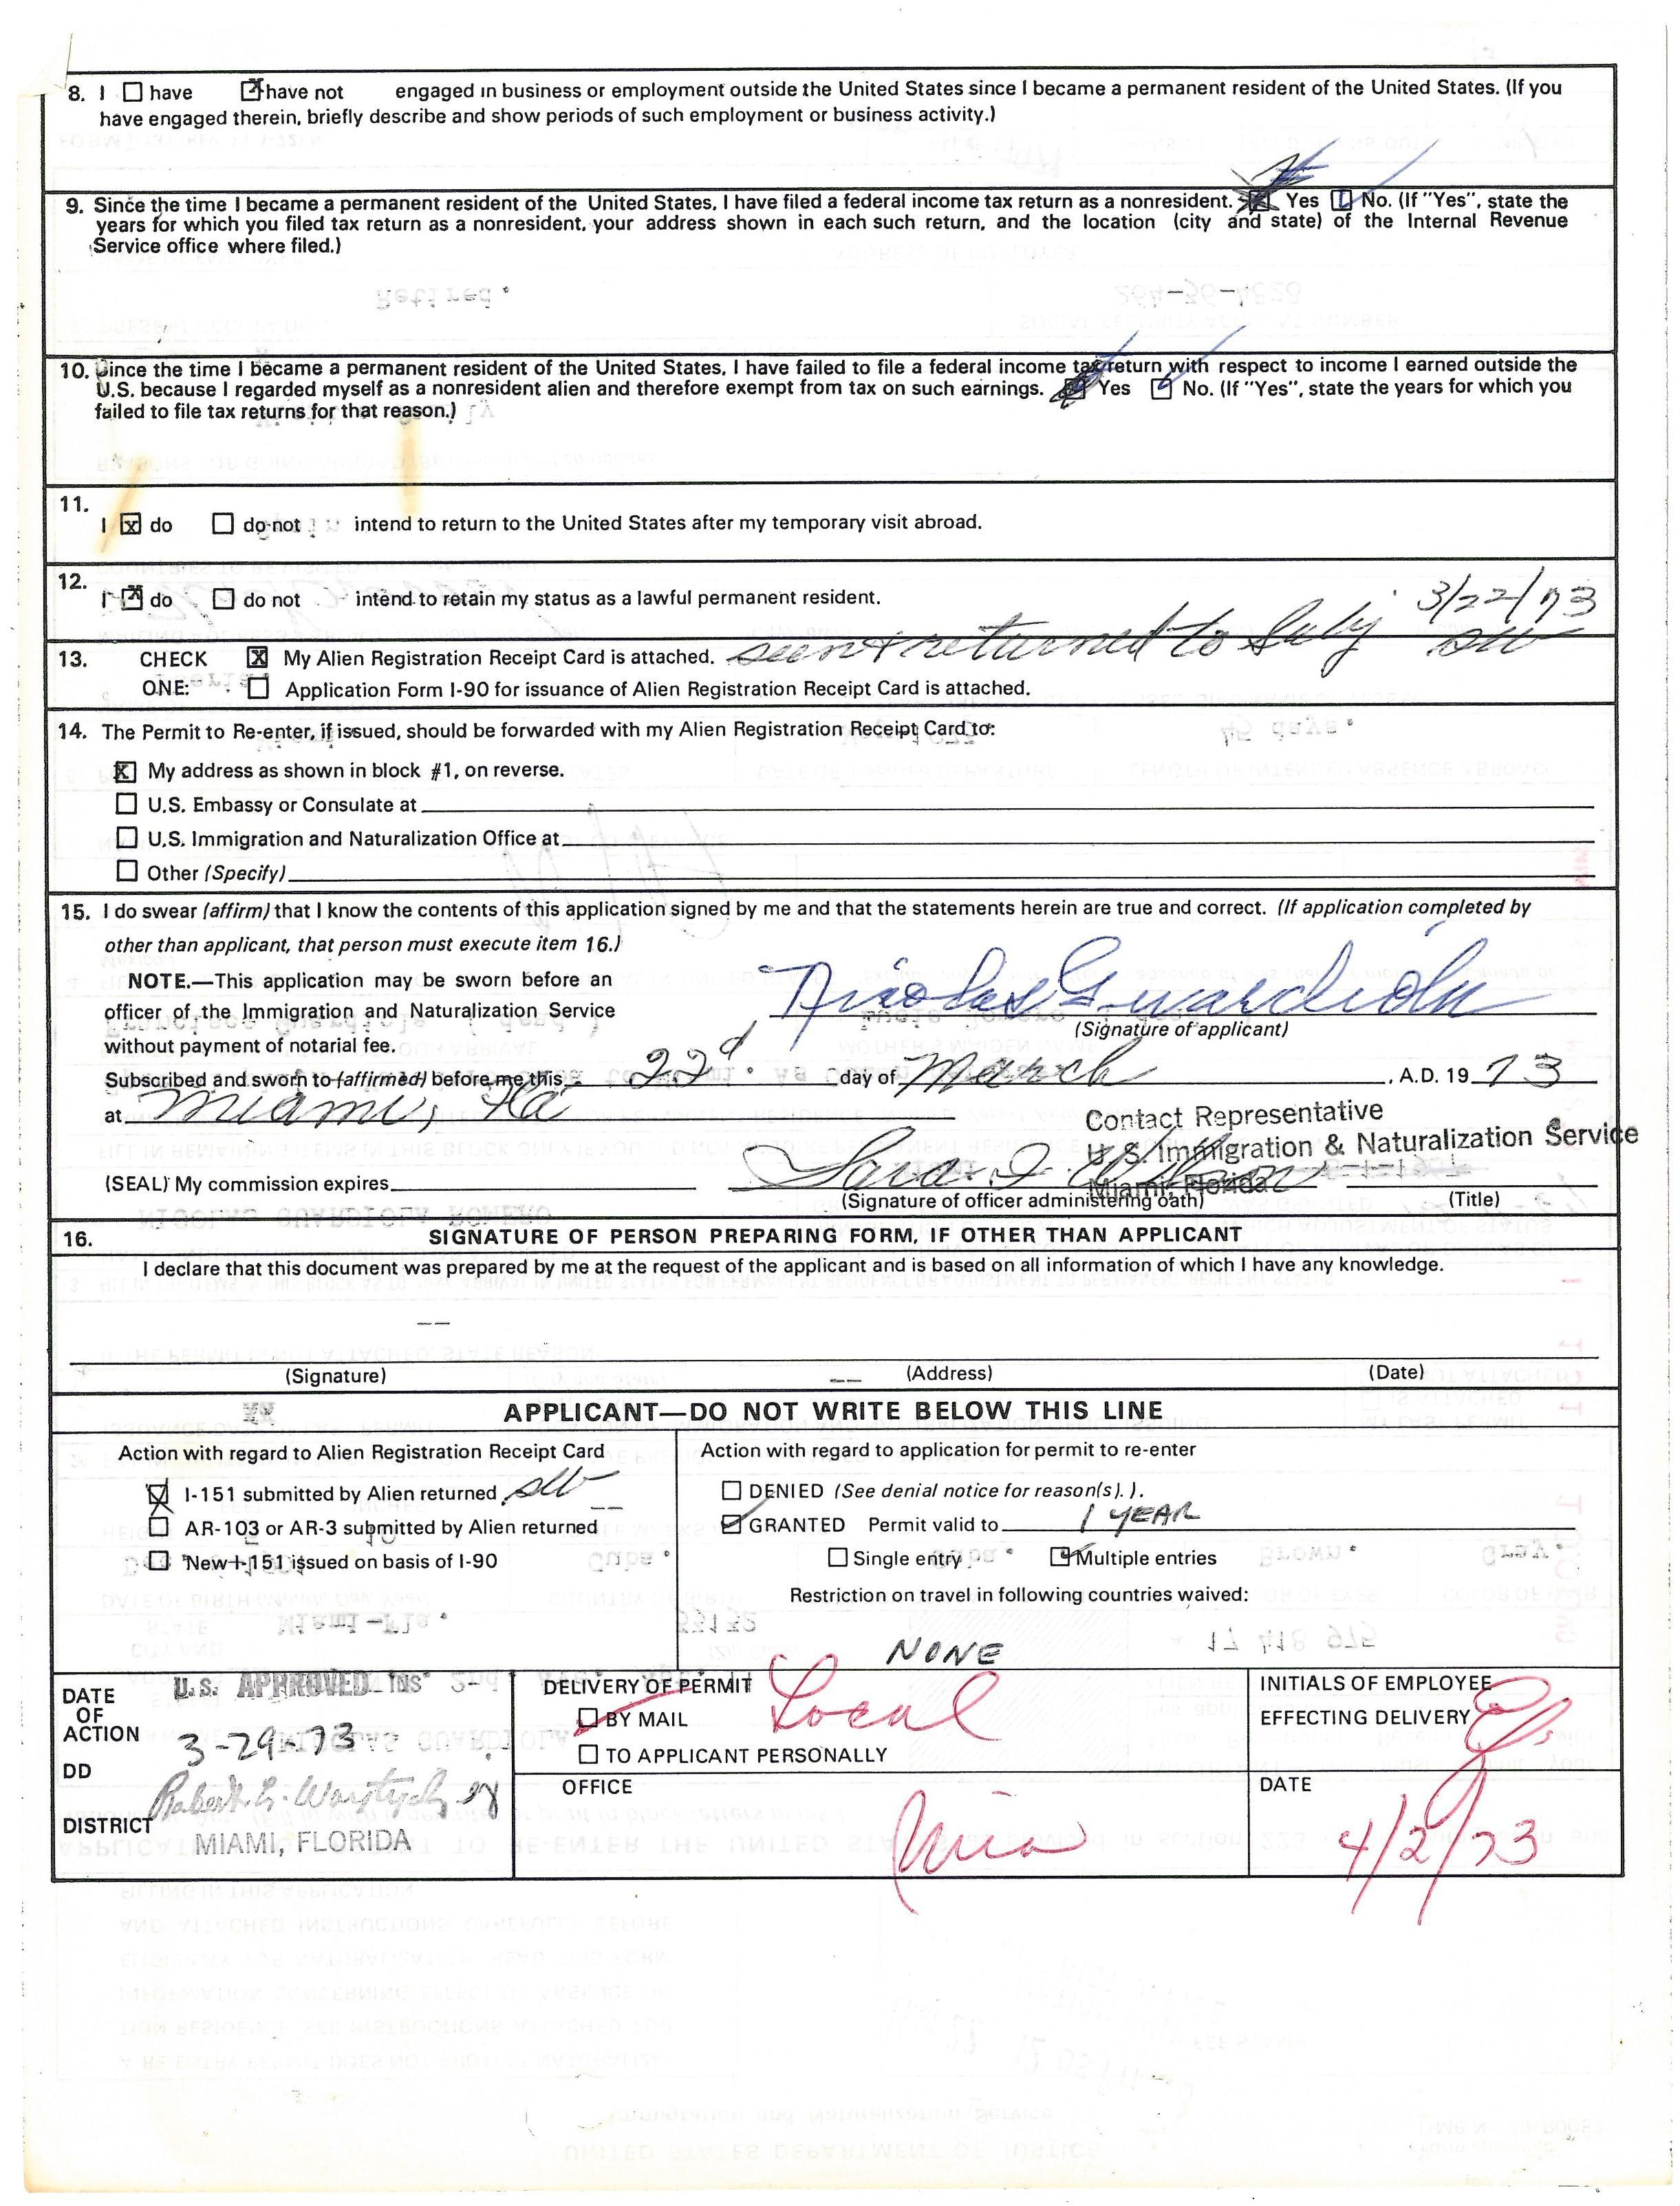 8. I ☐ have ☒ have not engaged in business or employment outside the United States since I became a permanent resident of the United States. (If you
have engaged therein, briefly describe and show periods of such employment or business activity.)
9. Since the time I became a permanent resident of the United States, I have filed a federal income tax return as a nonresident. ☒ Yes ☐ No. (If "Yes", state the
years for which you filed tax return as a nonresident, your address shown in each such return, and the location (city and state) of the Internal Revenue
Service office where filed.)
10. Since the time I became a permanent resident of the United States, I have failed to file a federal income tax return with respect to income I earned outside the
U.S. because I regarded myself as a nonresident alien and therefore exempt from tax on such earnings. ☒ Yes ☑ No. (If "Yes", state the years for which you
failed to file tax returns for that reason.)
11.
I ☒ do ☐ do not intend to return to the United States after my temporary visit abroad.
12.
I ☒ do ☐ do not intend to retain my status as a lawful permanent resident.
3/22/73
13. CHECK ☒ My Alien Registration Receipt Card is attached. seen & returned to
ONE: ☐ Application Form I-90 for issuance of Alien Registration Receipt Card is attached.
14. The Permit to Re-enter, if issued, should be forwarded with my Alien Registration Receipt Card to:
☒ My address as shown in block #1, on reverse.
☐ U.S. Embassy or Consulate at
☐ U.S. Immigration and Naturalization Office at
☐ Other (Specify)
15. I do swear (affirm) that I know the contents of this application signed by me and that the statements herein are true and correct. (If application completed by
other than applicant, that person must execute item 16.)
NOTE.—This application may be sworn before an
officer of the Immigration and Naturalization Service
without payment of notarial fee.
Nicolas Guardiola
(Signature of applicant)
Subscribed and sworn to (affirmed) before me this 22d day of March , A.D. 19 73
at Miami, Fla
Contact Representative
U. S. Immigration & Naturalization Service
Miami, Florida
(SEAL) My commission expires
(Signature of officer administering oath) (Title)
16. SIGNATURE OF PERSON PREPARING FORM, IF OTHER THAN APPLICANT
I declare that this document was prepared by me at the request of the applicant and is based on all information of which I have any knowledge.
(Signature) (Address) (Date)
APPLICANT—DO NOT WRITE BELOW THIS LINE
Action with regard to Alien Registration Receipt Card
☒ I-151 submitted by Alien returned
☐ AR-103 or AR-3 submitted by Alien returned
☐ New I-151 issued on basis of I-90
Action with regard to application for permit to re-enter
☐ DENIED (See denial notice for reason(s). ).
☑ GRANTED Permit valid to 1 YEAR
☐ Single entry ☑ Multiple entries
Restriction on travel in following countries waived:
NONE
DATE OF ACTION
U.S. APPROVED INS
3-29-73
DD
DISTRICT
MIAMI, FLORIDA
DELIVERY OF PERMIT
Local
☑ BY MAIL
☐ TO APPLICANT PERSONALLY
OFFICE
Mia
INITIALS OF EMPLOYEE
EFFECTING DELIVERY
DATE
4/2/73